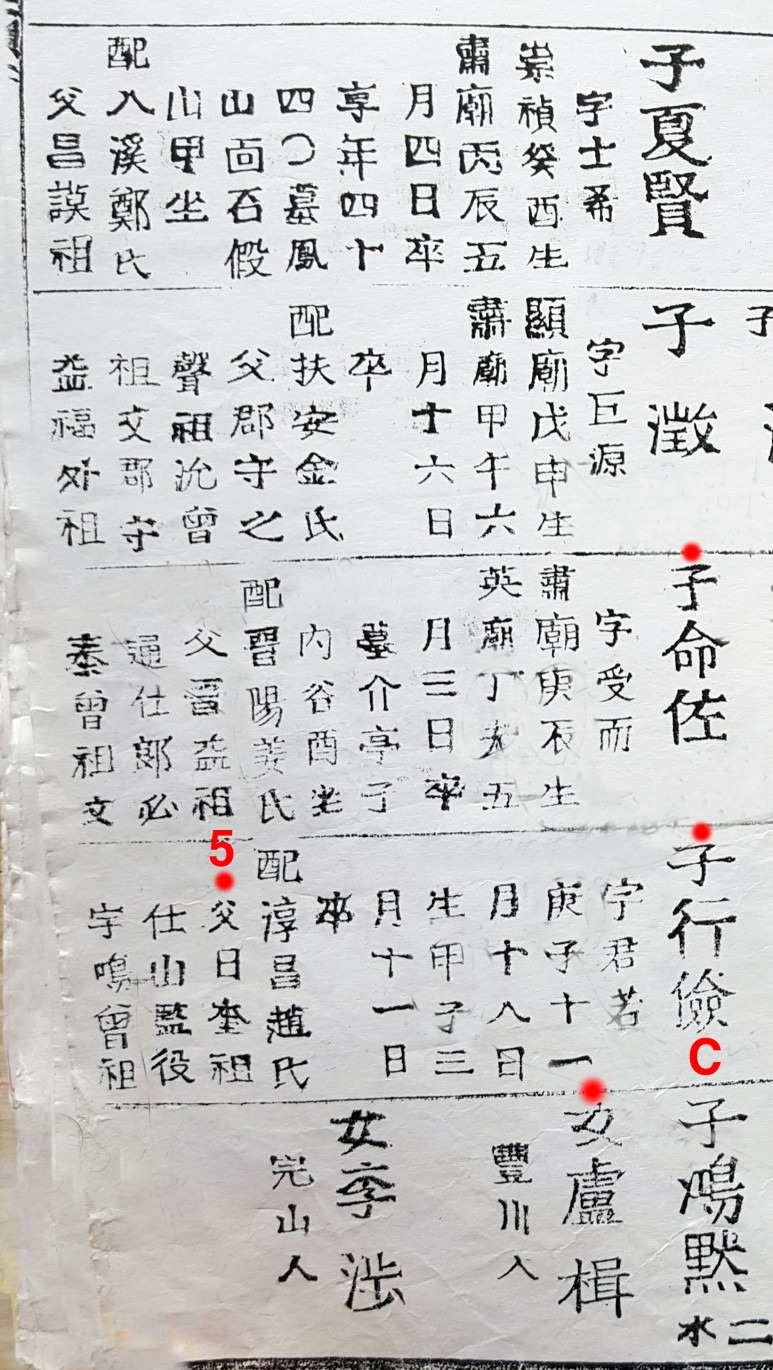 子夏賢
字士希
崇禎癸酉生
肅廟丙辰五
月四日卒
享年四十
四〇墓鳳
山面石假
山甲坐
配八溪鄭氏
父昌謨祖
子
子 澂
字巨源
顯廟戊申生
肅廟甲午六
月十六日
卒
配扶安金氏
父郡守之
聲祖沇曾
祖文郡守
益福外祖
子命佐
字受而
肅廟庚辰生
英廟丁亥五
月三日卒
墓介亭子
內谷酉坐
配晋陽姜氏
父晋益祖
通仕郞必
泰曾祖文
子行儉
C
字君若
庚子十一
月十八日
生甲子三
月十一日
卒
配淳昌趙氏
5
父日奎祖
仕山監役
字鳴曾祖
子鴻默
二
水
女盧楫
豐川人
女李 浵
完山人